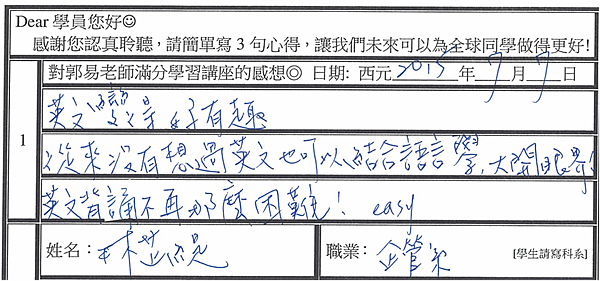 Dear 學員您好☺
感謝您認真聆聽，請簡單寫 3 句心得，讓我們未來可以為全球同學做得更好!
對郭易老師滿分學習講座的感想◎ 日期: 西元 2015 年 7 月 7 日
1
英文 好有趣
從來沒有想過英文也可以結合語言學，大開眼界!
英文背誦不再那麼困難! easy
姓名：
職業：企管系 [學生請寫科系]